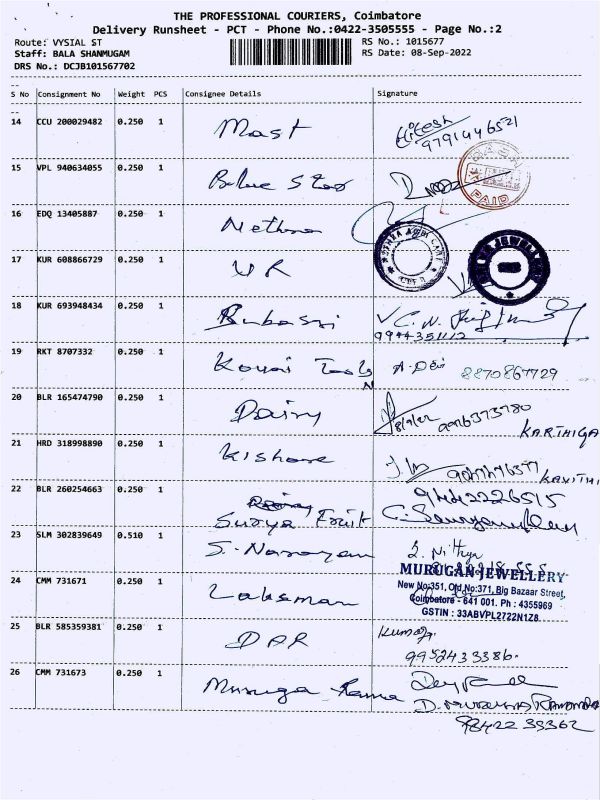 THE PROFESSIONAL COURIERS, Coimbatore
Delivery Runsheet - PCT - Phone No.:0422-3505555 - Page No.:2
Route: VYSIAL ST RS No.: 1015677
Staff: BALA SHANMUGAM RS Date: 08-Sep-2022
DRS No.: DCJB101567702
S No Consignment No Weight PCS Consignee Details Signature
14 CCU 200029482 0.250 1 Mast Hitesh
9791446521
15 VPL 940634055 0.250 1 Blue Star
PAID
16 EDQ 13405887 0.250 1 Nethra
17 KUR 608866729 0.250 1 UR
18 KUR 693948434 0.250 1 C.N.
9944351112
19 RKT 8707332 0.250 1 Kovai Tools A. Devi 8870867729
20 BLR 165474790 0.250 1 Dairy
KARTHIGA
21 HRD 318998890 0.250 1 Kishore
22 BLR 260254663 0.250 1 Surya Fruit 9442226515
23 SLM 302839649 0.510 1 S. Narayan
MURUGAN JEWELLERY
New No:351, Old No:371, Big Bazaar Street,
Coimbatore - 641 001. Ph : 4355969
GSTIN : 33ABVPL2722N1Z8
24 CMM 731671 0.250 1 Laksman
25 BLR 585359381 0.250 1 DAR Kumar
9952433386
26 CMM 731673 0.250 1 Muruga Rama
98422 33362